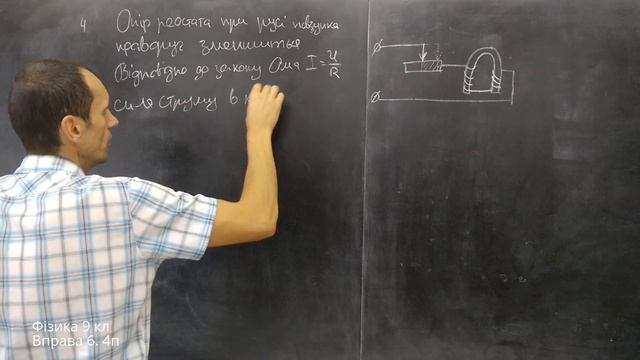 4. Опір реостата при русі повзунка
праворуч зменшиться
Відповідно до закону Ома I = U/R
сила струму в к
Фізика 9 кл
Вправа 6. 4п